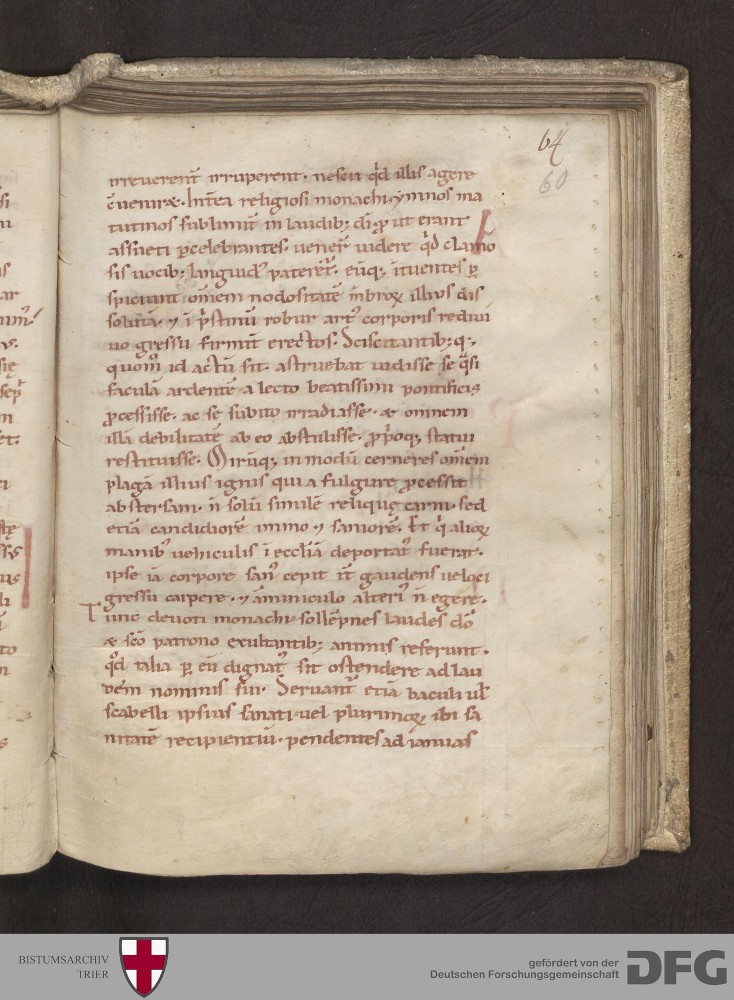 64
60
irreuerent̄ irruperent· nesciť qd̓ illis agere
c̄uenirӕ· Int̄ea religiosi monachi ẏmnos ma
tutinos sublimit̓ in laudib; dī· ꝓ ut erant
assueti ꝑcelebrantes· uener̄ uidere qd̓ clamo
sis uocib; languid᷒ pateret̓· eūq; ītuentes ꝑ
spiciunt om̄em nodositatē m̄broꝝ illius dis
solutā· ⁊ ī p̓stinū robur art᷒ corporis rediui
uo gressu firmit̓ erectos· Sciscitantib; q;
quom̊ id actū sit· astruebat uidisse se q̓si
faculā ardentē a lecto beatissimi pontificis
ꝓcessisse· ac se subito irradiasse· ӕ omnem
illā debilitatē ab eo abstulisse· ꝓp̓oq; statui
restituisse· Mirūq; in modū cerneres om̄em
plagā illius ignis qui a fulgure ꝓcessit
abstersam· n̄ solū similē reliquę carni· sed
etiā candidiorē immo ⁊ saniorē· Et q̓ alioꝝ
manib᷒ uehiculis ī eccl̄iā deportat᷒ fuerat·
ipse iā corpore san᷒ cepit it̓ gaudens ueloci
gressu carpere· ⁊ āminiculo alteri᷒ n̄ egere·
Tunc deuoti monachi sollēpnes laudes dō
ӕ scō patrono exultantib; animis referunt·
qd̓ talia ꝑ eū dignat᷒ sit ostendere ad lau
dem nominis sui· Seruant̓ etiā baculi ul̓
scabelli ipsius sanati uel plurimoꝝ ibi sa
nitatē recipientiū· pendentes ad ianuas
BISTUMSARCHIV
TRIER
gefördert von der
Deutschen Forschungsgemeinschaft
DFG